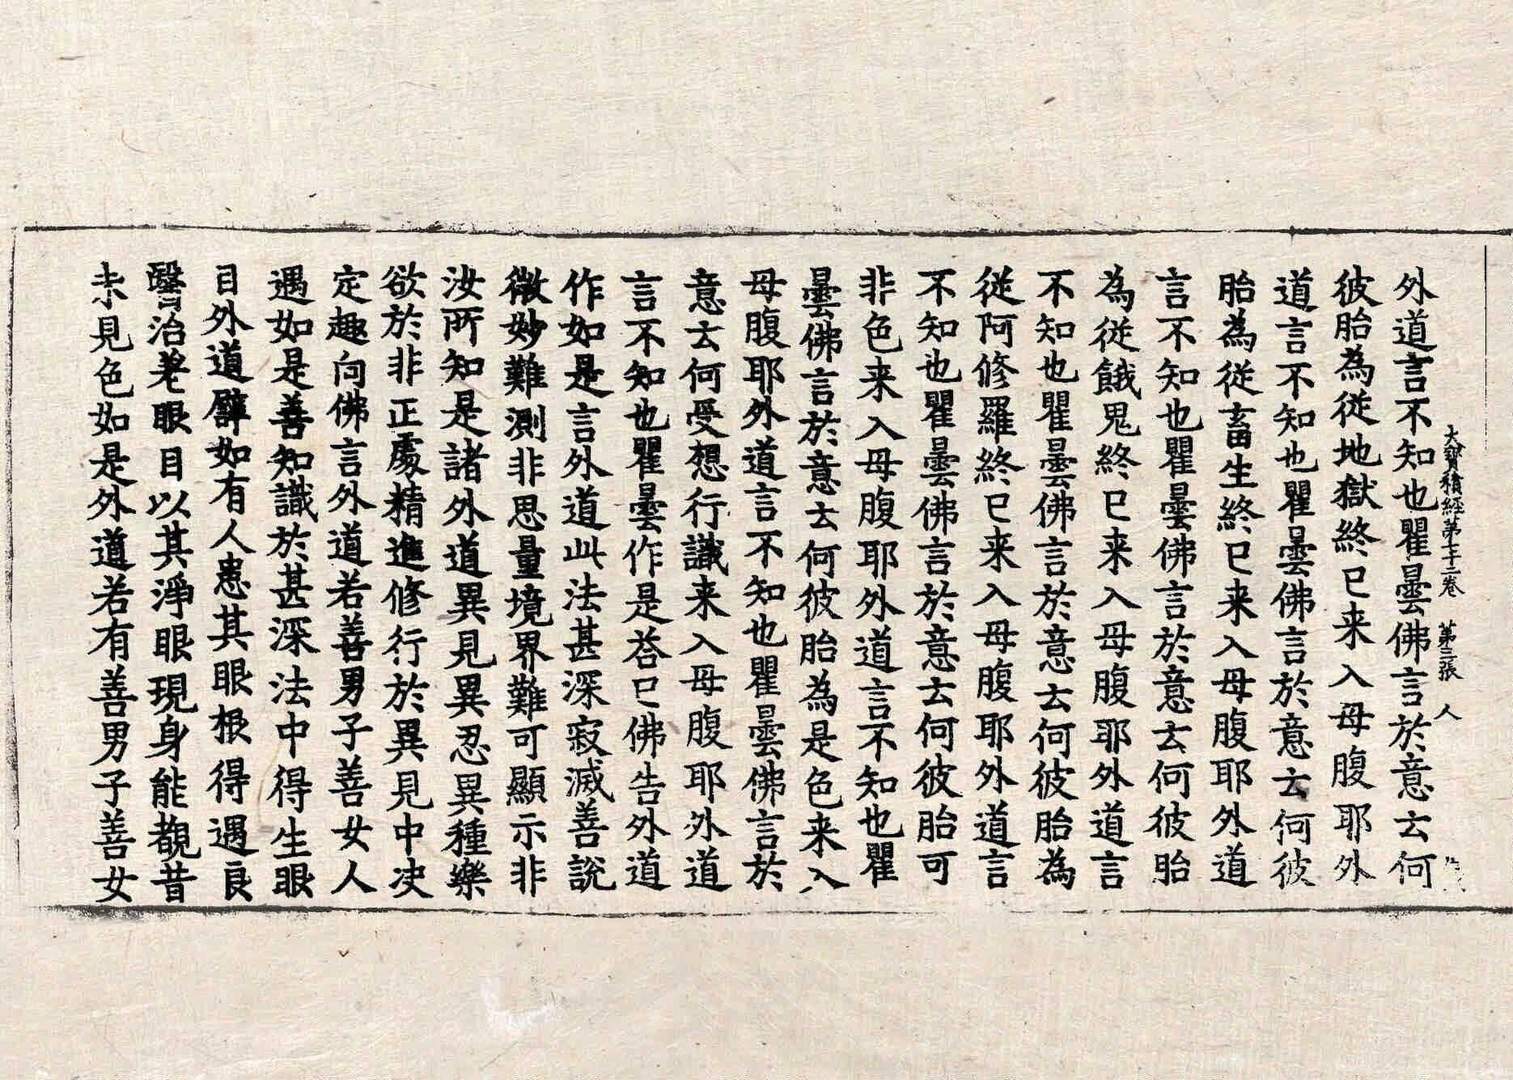 大寶積經第七十二卷 第三張 人
外道言不知也瞿曇佛言於意云何
彼胎為從地獄終已来入母腹耶外
道言不知也瞿曇佛言於意云何彼
胎為從畜生終已来入母腹耶外道
言不知也瞿曇佛言於意云何彼胎
為從餓鬼終已来入母腹耶外道言
不知也瞿曇佛言於意云何彼胎為
從阿修羅終已来入母腹耶外道言
不知也瞿曇佛言於意云何彼胎可
非色来入母腹耶外道言不知也瞿
曇佛言於意云何彼胎為是色来入
母腹耶外道言不知也瞿曇佛言於
意云何受想行識来入母腹耶外道
言不知也瞿曇作是荅已佛告外道
作如是言外道此法甚深寂滅善說
微妙難測非思量境界難可顯示非
汝所知是諸外道異見異忍異種樂
欲於非正處精進修行於異見中决
定趣向佛言外道若善男子善女人
遇如是善知識於甚深法中得生眼
目外道譬如有人患其眼根得遇良
醫治差眼目以其淨眼現身能覩昔
未見色如是外道若有善男子善女